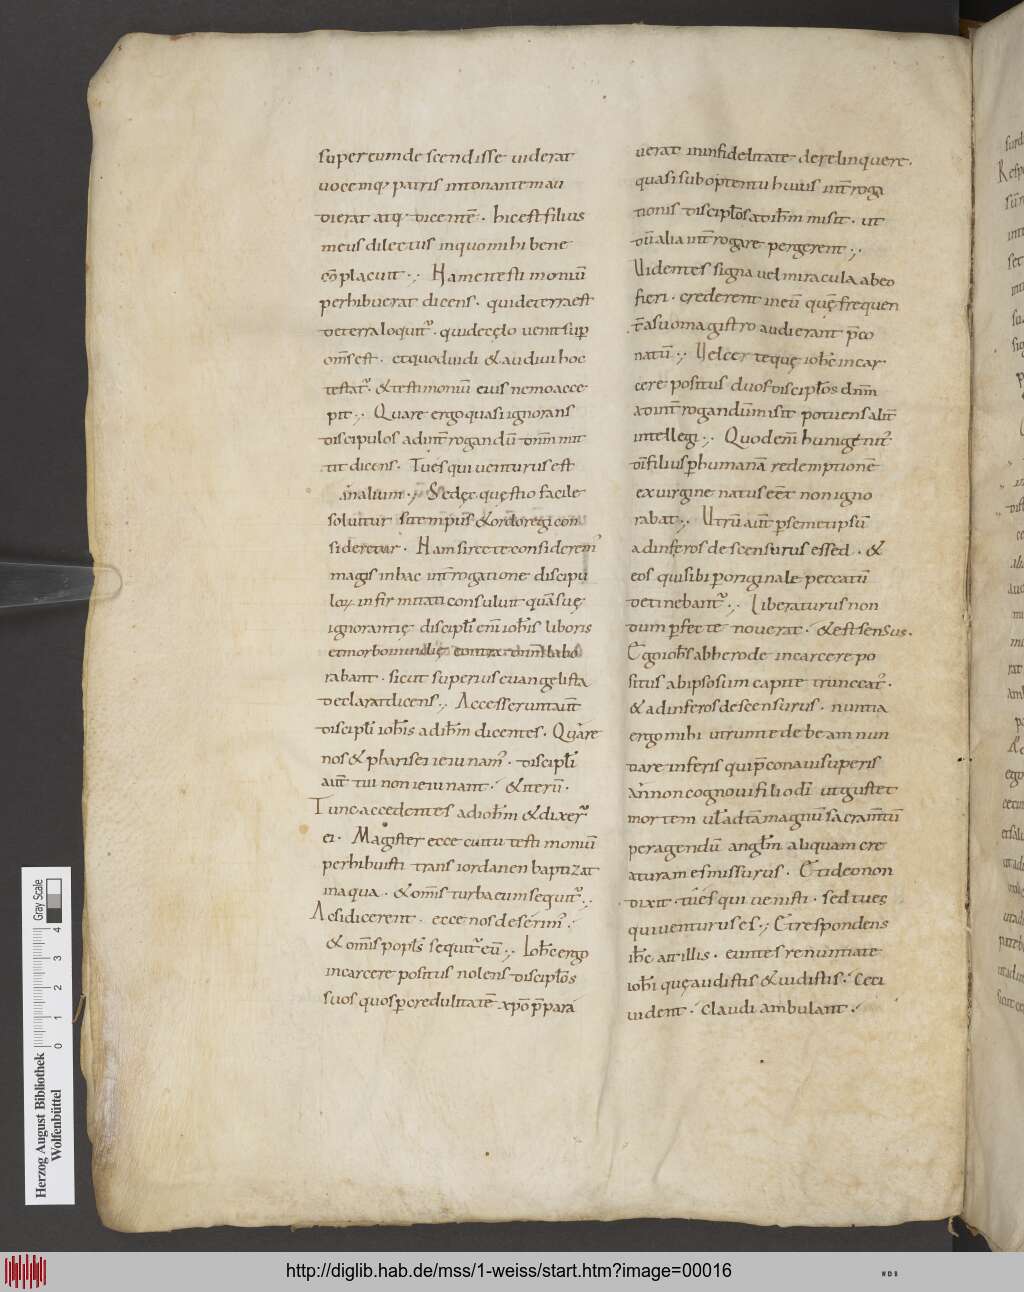 super eum descendisse uiderat
uocemq; patris intonantem au
dierat atq; dicentē. hic est filius
meus dilectus in quo mihi bene
cōplacuit. Nam et testimoniū
perhibuerat dicens. qui de terra est
de terra loquit̄. qui de cęlo uenit sup
om̄s est. et quod uidi & audiui hoc
testat̄. & testimoniū eius nemo acce
pit. Quare ergo quasi ignorans
discipulos ad int̄rogandū dn̄m mit
tit dicens. Tu es qui uenturus est
Sed et quęstio facile
soluitur si tempus & ordo regi con
sideretur. Nam si recte consideremꝰ
magis in hac int̄rogatione discipu
loꝝ infirmitati consuluit quā suę
ignorantię discipli eni iohis liboris
et morbo inuidię contra dn̄m labo
rabant. sicut superius euangelista
declarat dicens. Accesserunt aut̄
discipli iohis ad ihm dicentes. Quare
nos & pharisei ieiunamꝰ. discipli
aut̄ tui non ieiunant. & iterū.
Tunc accedentes ad ioh̄m & dixer̄
ei. Magister ecce cui tu testimoniū
perhibuisti trans iordanen baptizat
in aqua. & om̄is turba eum sequit̄.
Ac si dicerent. ecce nos deserimꝰ.
& om̄is popls sequit̄ eū. Ioh̄s ergo
in carcere positus nolens disciplos
suos quos p credulitatē xpō p̄para
uerat in infidelitate derelinquere.
quasi sub optentu huius int̄roga
tionis disciplos ad ih̄m misit. ut
dū alia int̄rogare pergerent.
Uidentes signa uel miracula ab eo
fieri. crederent in eū quę frequen
t̄ a suo magistro audierant p̄co
natū. Uel certe quę ioh̄s in car
cere positus duos disciplos dn̄m
ad int̄rogandū misit potuens alit̄
intellegi. Quod em̄ hunigenit̄
dī filius p humanā redemptionē
ex uirgine natus eēt non igno
rabat. Utrū aut̄ p semetipsū
ad inferos descensurus esset. &
eos qui sibi p originale peccatū
detinebant̄. Liberaturus non
dum pfecte nouerat. & est sensus.
Ego iohs ab herode in carcere po
situs ab ipso sum capite truncatꝰ.
& ad inferos descensurus. nuntia
ergo mihi utrum te debeam nun
tiare inferis qui p̄conaui superis
An non cognoui filio di ut gustet
mortem ul ad tā magnū sacram̄tū
peragendū anglm aliquam cre
aturam es missurus. Et ideo non
dixit. tu es qui uenisti. sed tu es
qui uenturus es. Et respondens
ih̄s ait illis. euntes renuntiate
iohi quę audistis & uidistis. Ceci
uident. Claudi ambulant.
Herzog August Bibliothek
Wolfenbüttel
0 1 2 3 4
Gray Scale
http://diglib.hab.de/mss/1-weiss/start.htm?image=00016